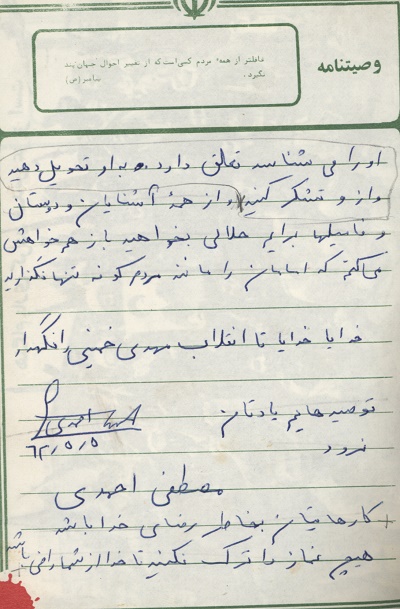 وصیتنامه
غافلتر از همهٔ مردم کسی است که از تغییر احوال جهان پند
نگیرد.
پیامبر (ص)
او را می شناسد تعلق دارد به او تحویل دهید
و از او تشکر کنید و از همهٔ آشنایان و دوستان
و فامیلها برایم حلالی بخواهید باز هم خواهش
می کنم که امامان را مانند مردم کوفه تنها نگذارید
خدایا خدایا تا انقلاب مهدی خمینی را نگهدار
توصیه هایم یادتان
نرود
احمدی
۶۲/۵/۵
مصطفی احمدی
کارهایتان بخاطر رضای خدا باشد
هیچ نماز را ترک نکنید تا خدا از شما راضی باشد